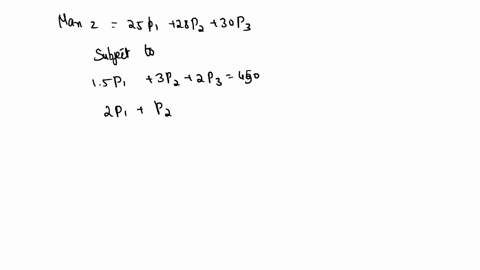 Max z = 25P₁ + 28P₂ + 30P₃
Subject to
1.5P₁ + 3P₂ + 2P₃ = 450
2P₁ + P₂